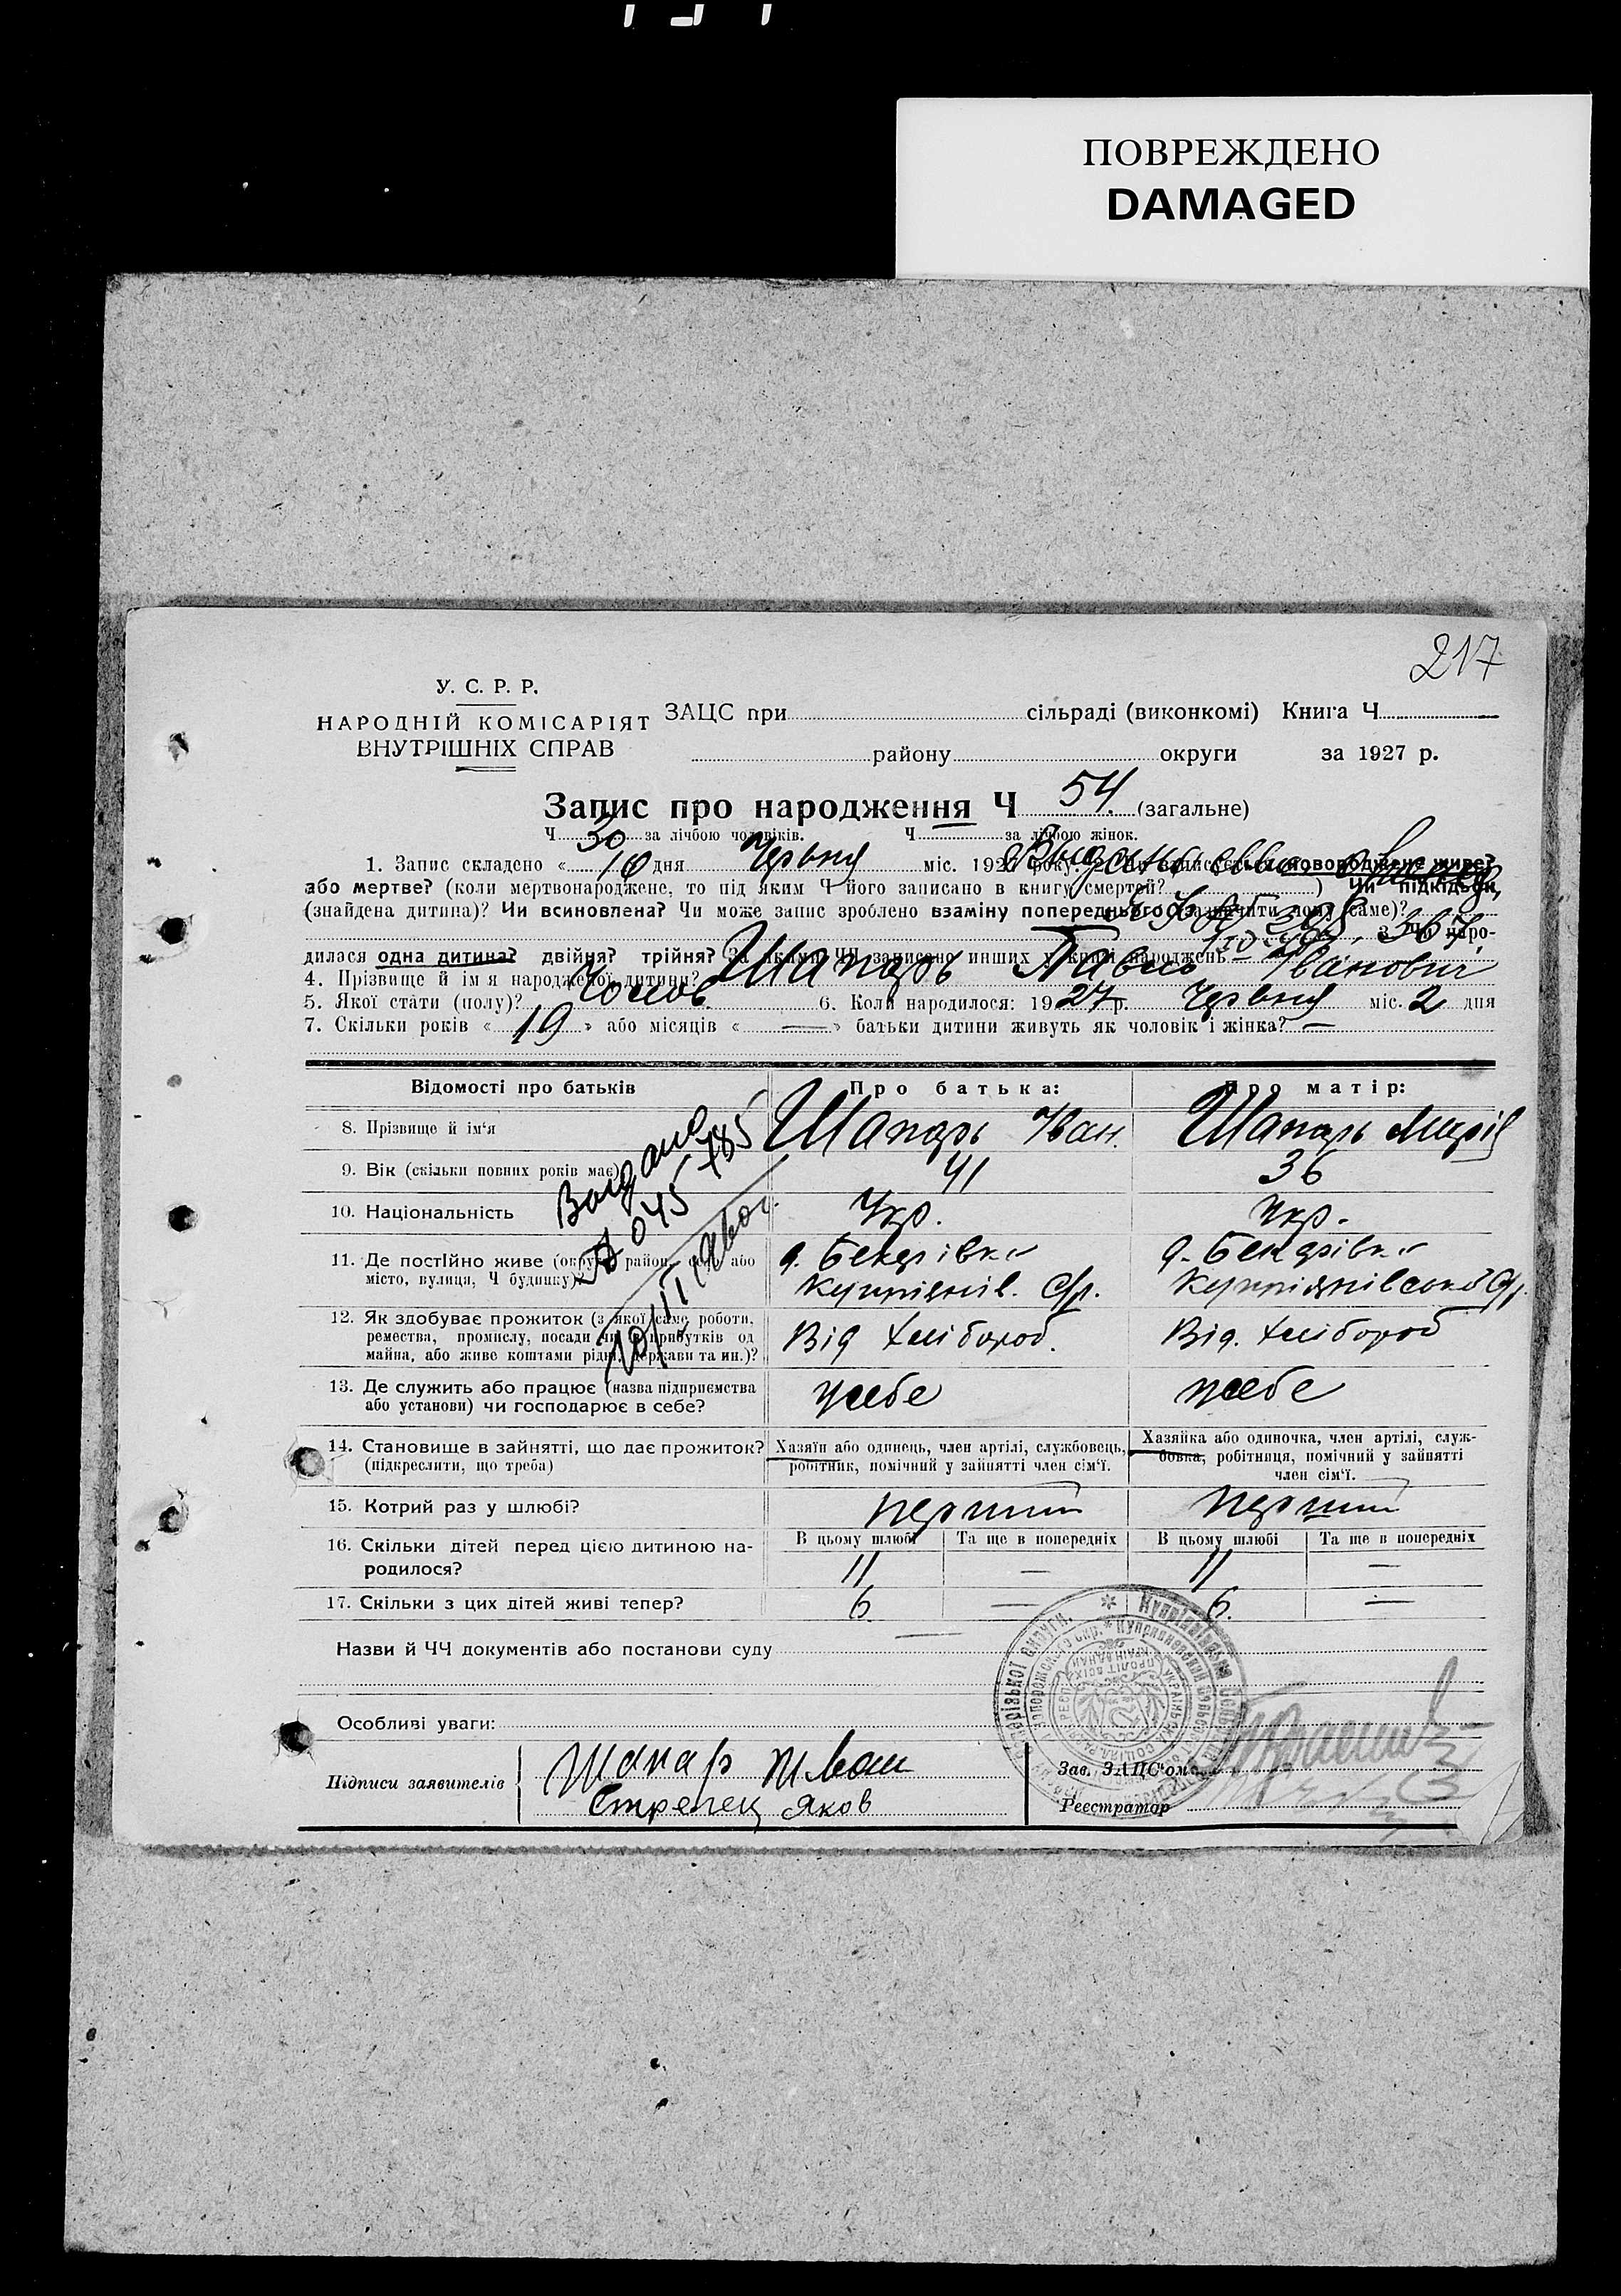 ПОВРЕЖДЕНО
DAMAGED
217
У. С. Р. Р.
НАРОДНІЙ КОМІСАРІЯТ
ВНУТРІШНІХ СПРАВ
ЗАЦС при сільраді (виконкомі) Книга Ч.
району округи за 1927 р.
Запис про народження Ч 54 (загальне)
Ч 30 за лічбою чоловіків. Ч за лічбою жінок.
1. Запис складено « 10 дня Червня міс. 1927 року. 2. Чи записується новороджене живе?
або мертве? (коли мертвонароджене, то під яким Ч його записано в книгу смертей? ) Чи підкідьок,
(знайдена дитина)? Чи всиновлена? Чи може запис зроблено взаміну попереднього (зазначити чому саме)?
367, 3. Чи наро-
дилася одна дитина? двійня? трійня? За якими ЧЧ записано инших у книзі народжень
4. Прізвище й ім'я народженої дитини? Шапарь Павло Іванович
5. Якої стати (полу)? Чолов. 6. Коли народилося: 1927 р. Червня міс. 2 дня
7. Скільки років « 19 » або місяців « — » батьки дитини живуть як чоловік і жінка? —
Відомості про батьків Про батька: Про матір:
8. Прізвище й ім'я Шапарь Іван. Шапарь Марія
9. Вік (скільки повних років має) 41 36
10. Національність Укр. Укр.
11. Де постІйно живе (округа, район, село або
місто, вулиця, Ч будинку)?
12. Як здобуває прожиток (з якої саме роботи,
ремества, промислу, посади чи з прибутків од
майна, або живе коштами рідні, держави та ин.)?
Від хлібороб. Від. хлібороб
13. Де служить або працює (назва підприємства
або установи) чи господарює в себе?
усебе усебе
14. Становище в зайнятті, що дає прожиток?
(підкреслити, що треба)
Хазяїн або одинець, член артілі, службовець,
робітник, помічний у зайнятті член сім'ї.
Хазяйка або одиночка, член артілі, служ-
бовка, робітниця, помічний у зайнятті
член сім'ї.
15. Котрий раз у шлюбі? перший перший
16. Скільки дітей перед цією дитиною на-
родилося?
В цьому шлюбі Та ще в попередніх В цьому шлюбі Та ще в попередніх
11 — 11 —
17. Скільки з цих дітей живі тепер? 6 — 6. —
Назви й ЧЧ документів або постанови суду —
Особливі уваги:
Підписи заявителів
Шапар Иван
Стрелец Яков
Зав. ЗАЦС'ом
Реєстратор